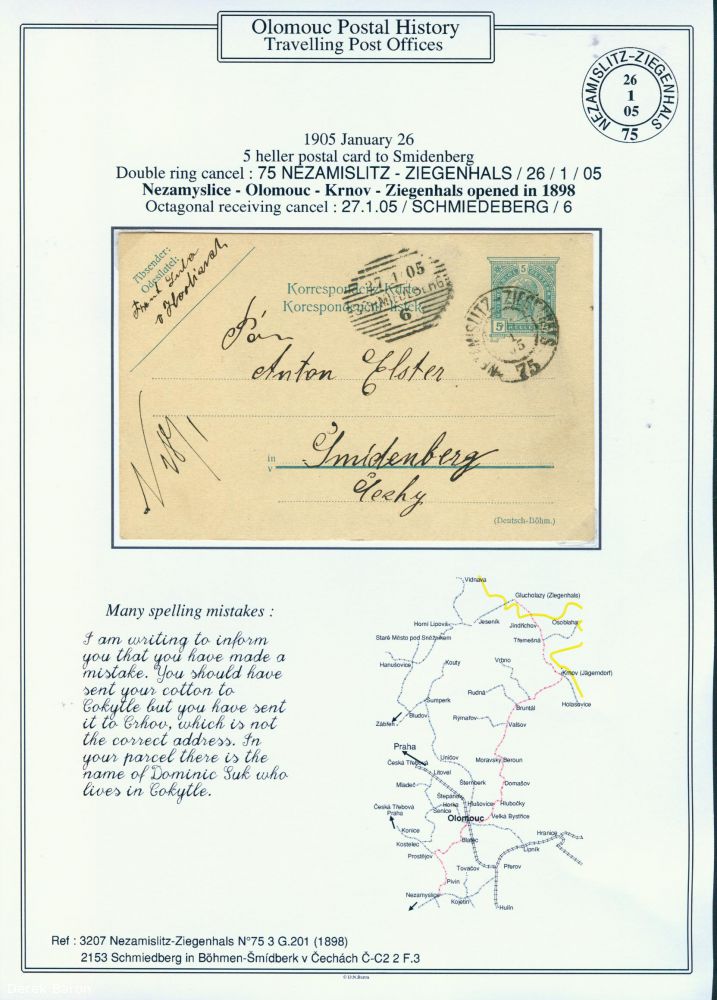 Olomouc Postal History
Travelling Post Offices
NEZAMISLITZ-ZIEGENHALS
26
1
05
75
1905 January 26
5 heller postal card to Smidenberg
Double ring cancel : 75 NEZAMISLITZ - ZIEGENHALS / 26 / 1 / 05
Nezamyslice - Olomouc - Krnov - Ziegenhals opened in 1898
Octagonal receiving cancel : 27.1.05 / SCHMIEDEBERG / 6
Absender:
Odesílatel:
Korrespondenz-Karte
Korespondenční lístek
1 05
6
5
5
HELLER
NEZAMISLITZ-ZIEGENHALS
75
Pán
Anton Elster
in
v
Šmidenberg
Čechy
(Deutsch-Böhm.)
Many spelling mistakes :
I am writing to inform
you that you have made a
mistake. You should have
sent your cotton to
Cokytle but you have sent
it to Crhov, which is not
the correct address. In
your parcel there is the
name of Dominic Suk who
lives in Cokytle.
Vidnava
Glucholazy (Ziegenhals)
Horní Lipová
Jeseník
Jindřichov
Osoblaha
Staré Město pod Sněžníkem
Třemešná
Hanušovice
Kouty
Vrbno
Krnov (Jägerndorf)
Rudná
Holasovice
Šumperk
Bruntál
Zábřeh
Bludov
Rýmařov
Valšov
Praha
Česká Třebová
Uničov
Moravský Beroun
Litovel
Mladeč
Šternberk
Domašov
Štepánov
Česká Třebová
Praha
Horka
Senice
Hlušovice
Hlubočky
Olomouc
Velká Bystřice
Konice
Kostelec
Blatec
Hranice
Lipník
Prostějov
Tovačov
Přerov
Pivín
Nezamyslice
Kojetín
Hulín
Ref : 3207 Nezamislitz-Ziegenhals N°75 3 G.201 (1898)
2153 Schmiedberg in Böhmen-Šmídberk v Čechách Č-C2 2 F.3
© D.N.Baron
Derek Baron